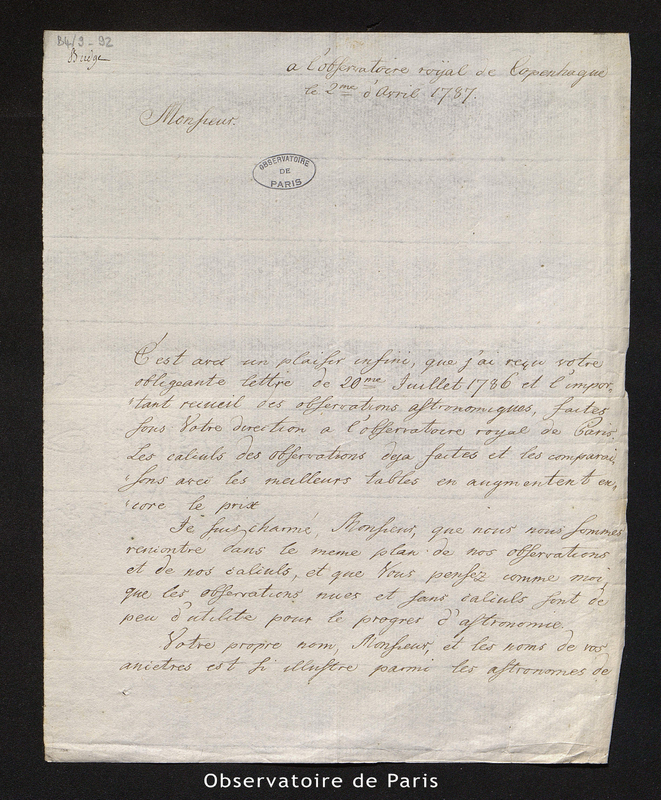 B4/9-92
Bugge
a l'observatoire royal de Copenhague
le 2me d'Avril 1787.
Monsieur.
OBSERVATOIRE
DE
PARIS
C'est avec un plaisir infini, que j'ai reçu votre
obligeante lettre de 20me Juillet 1786 et l'impor,
tant recueil des observations astronomiques, faites
sous Votre direction a l'observatoire royal de Paris.
Les calculs des observations deja faites et les comparai,
sons avec les meilleurs tables en augmentent en,
core le prix
Je suis charmé, Monsieur, que nous nous sommes
rencontre dans le meme plan de nos observations
et de nos calculs, et que Vous pensez comme moi,
que les observations nues et sans calculs sont de
peu d'utilite pour le progres d'astronomie.
Votre propre nom, Monsieur, et les noms de vos
ancetres est si illustre parmi les astronomes de
Observatoire de Paris